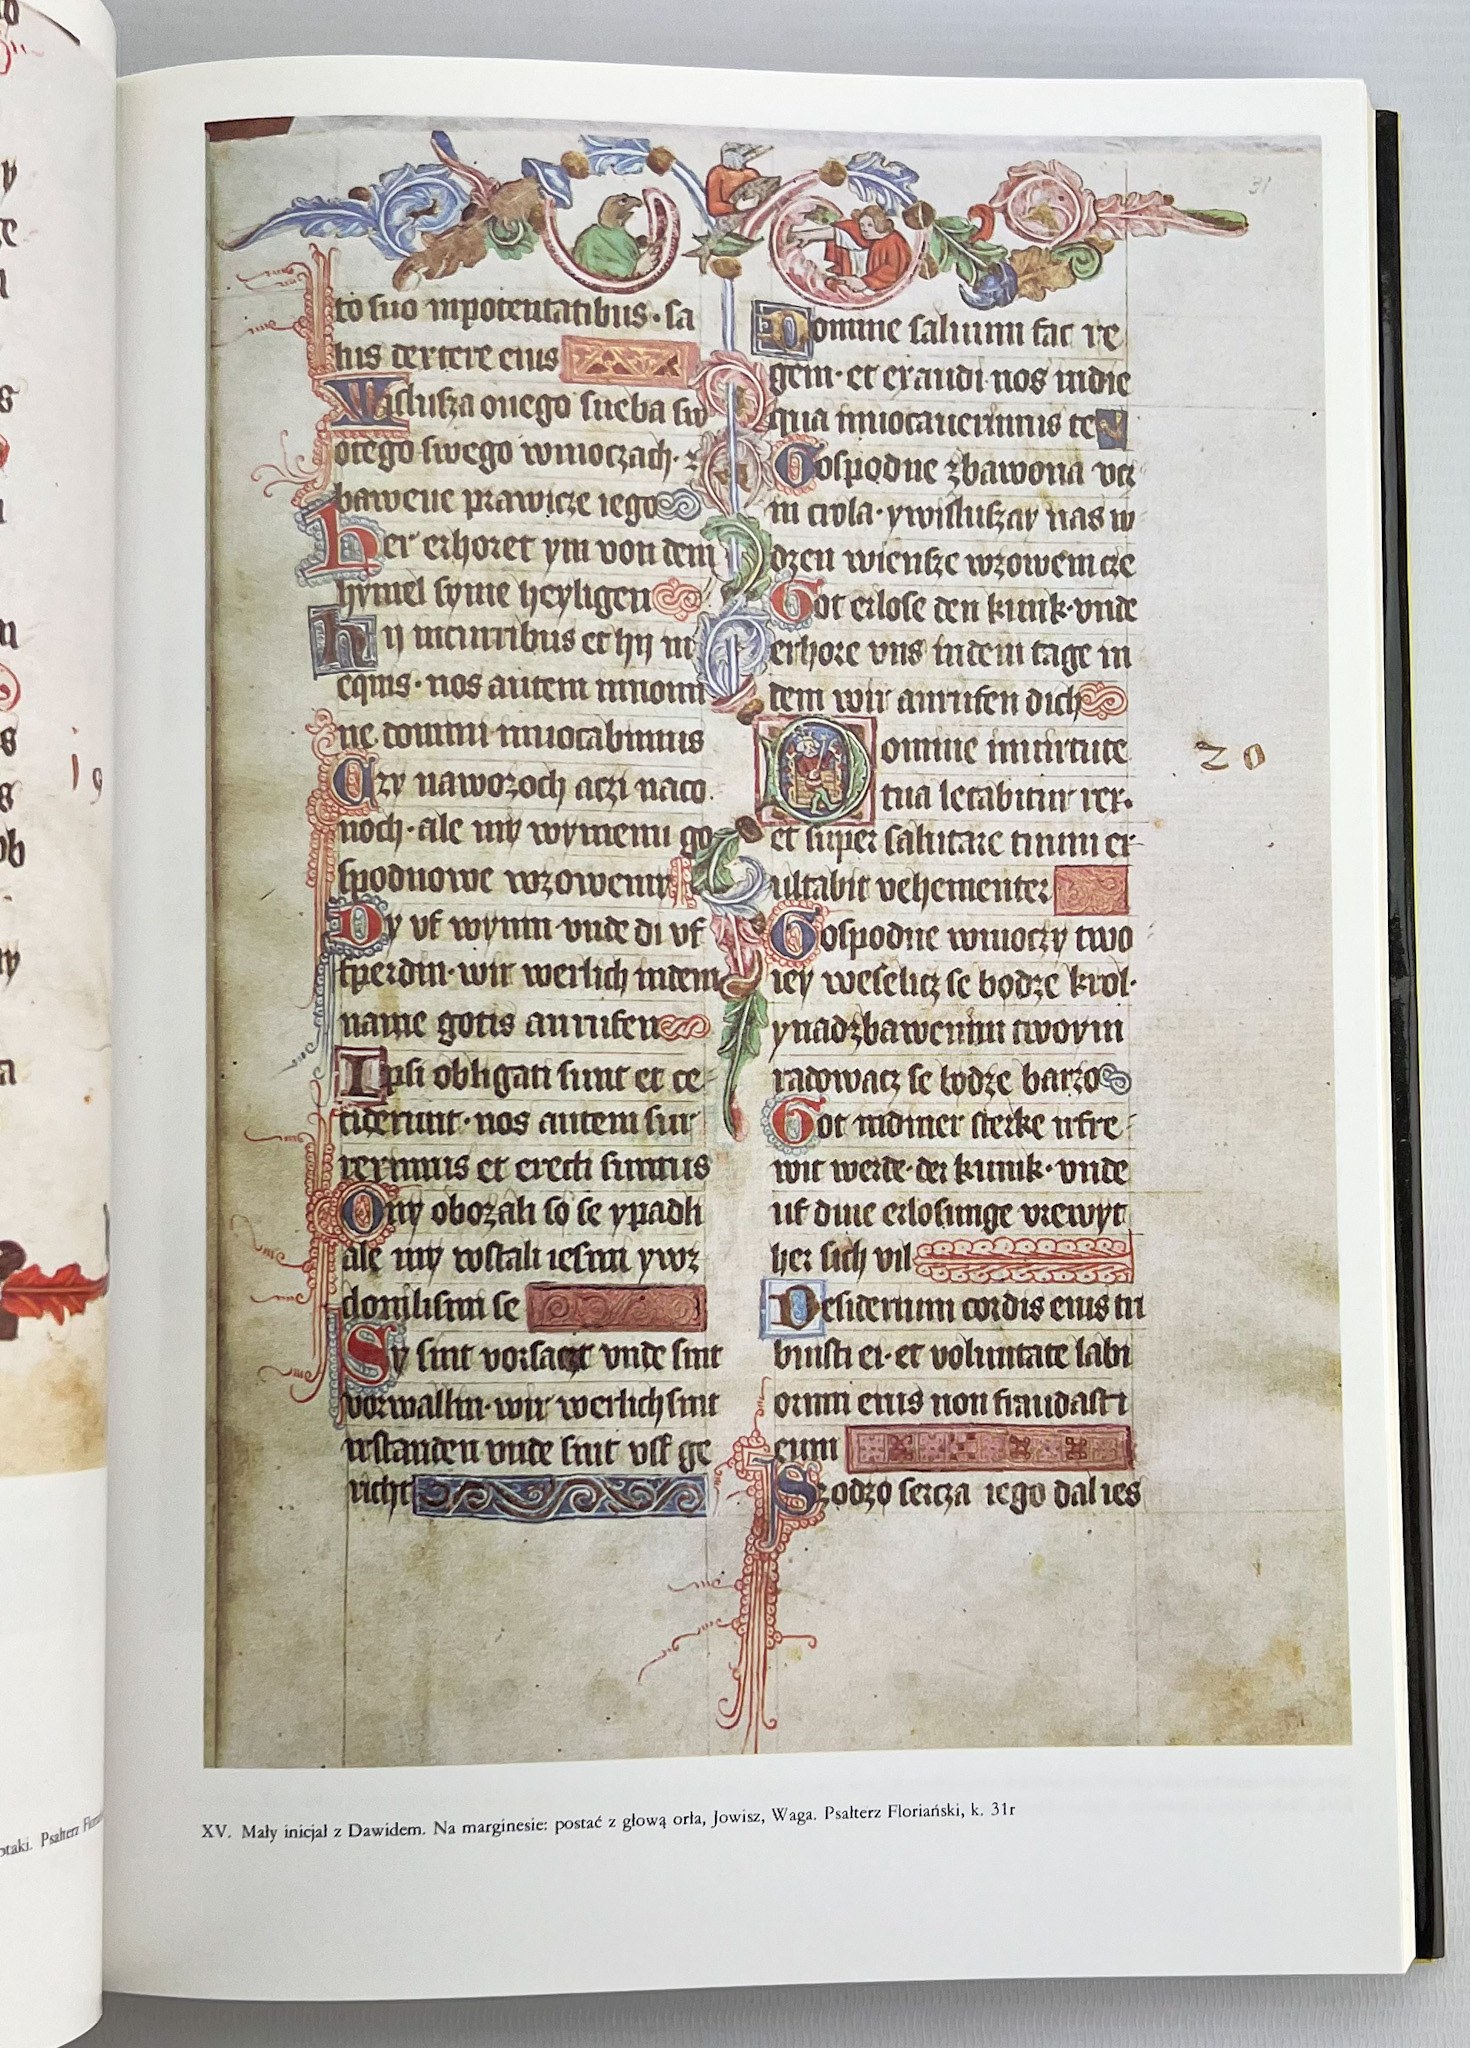 31
to suo inpotentatibus · sa
lus dextere eius
Wislusza onego sneba sw
otego swego wmoczach · z
bawene prawicze iego
Her erhoret ym von dem
hymel syme heyligen
Hij incurribus et hij in
equis · nos autem innomi
ne domini inuocabimus
Czy nawozoch aczi naco
noch · ale my wymenu go
spodnowe wzowemy
Dy vf wynin vnde di vf
fperdin · wir werlich indem
name gotis anrufen
Ipsi obligati sunt et ce
ciderunt · nos autem sur
reximus et erecti sumus
Ony obozali so se ypadli
ale my wstali iesmi ywz
domlismi se
Sy sint vorsact vnde sint
vorwallin · wir werlich sint
irstanden vnde sint vff ge
richt
Domine saluum fac re
gem · et exaudi nos indie
qua inuocauerimus te
Gospodne zbawona vcz
in crola · ywisluszay nas w
dzen wiensze wzowem cze
Got erlose den kunk · vnde
erhore vns indem tage in
dem wir anrufen dich
Domine inuirtute
tua letabitur rex ·
et super salutare tuum ex
ultabit vehementer
Gospodne wmoczy two
iey weselicz se bodze krol ·
ynadzbawenim twoym
radowacz se bodze barzo
Got indiner sterke irfre
wit werde · der kunik · vnde
uf dine erlosunge vrewyt
her sich vil
Desiderium cordis eius tri
buisti ei · et voluntate labi
orum eius non fraudasti
eum
Szodzo sercza iego dal ies
20
19
XV. Mały inicjał z Dawidem. Na marginesie: postać z głową orła, Jowisz, Waga. Psałterz Floriański, k. 31r